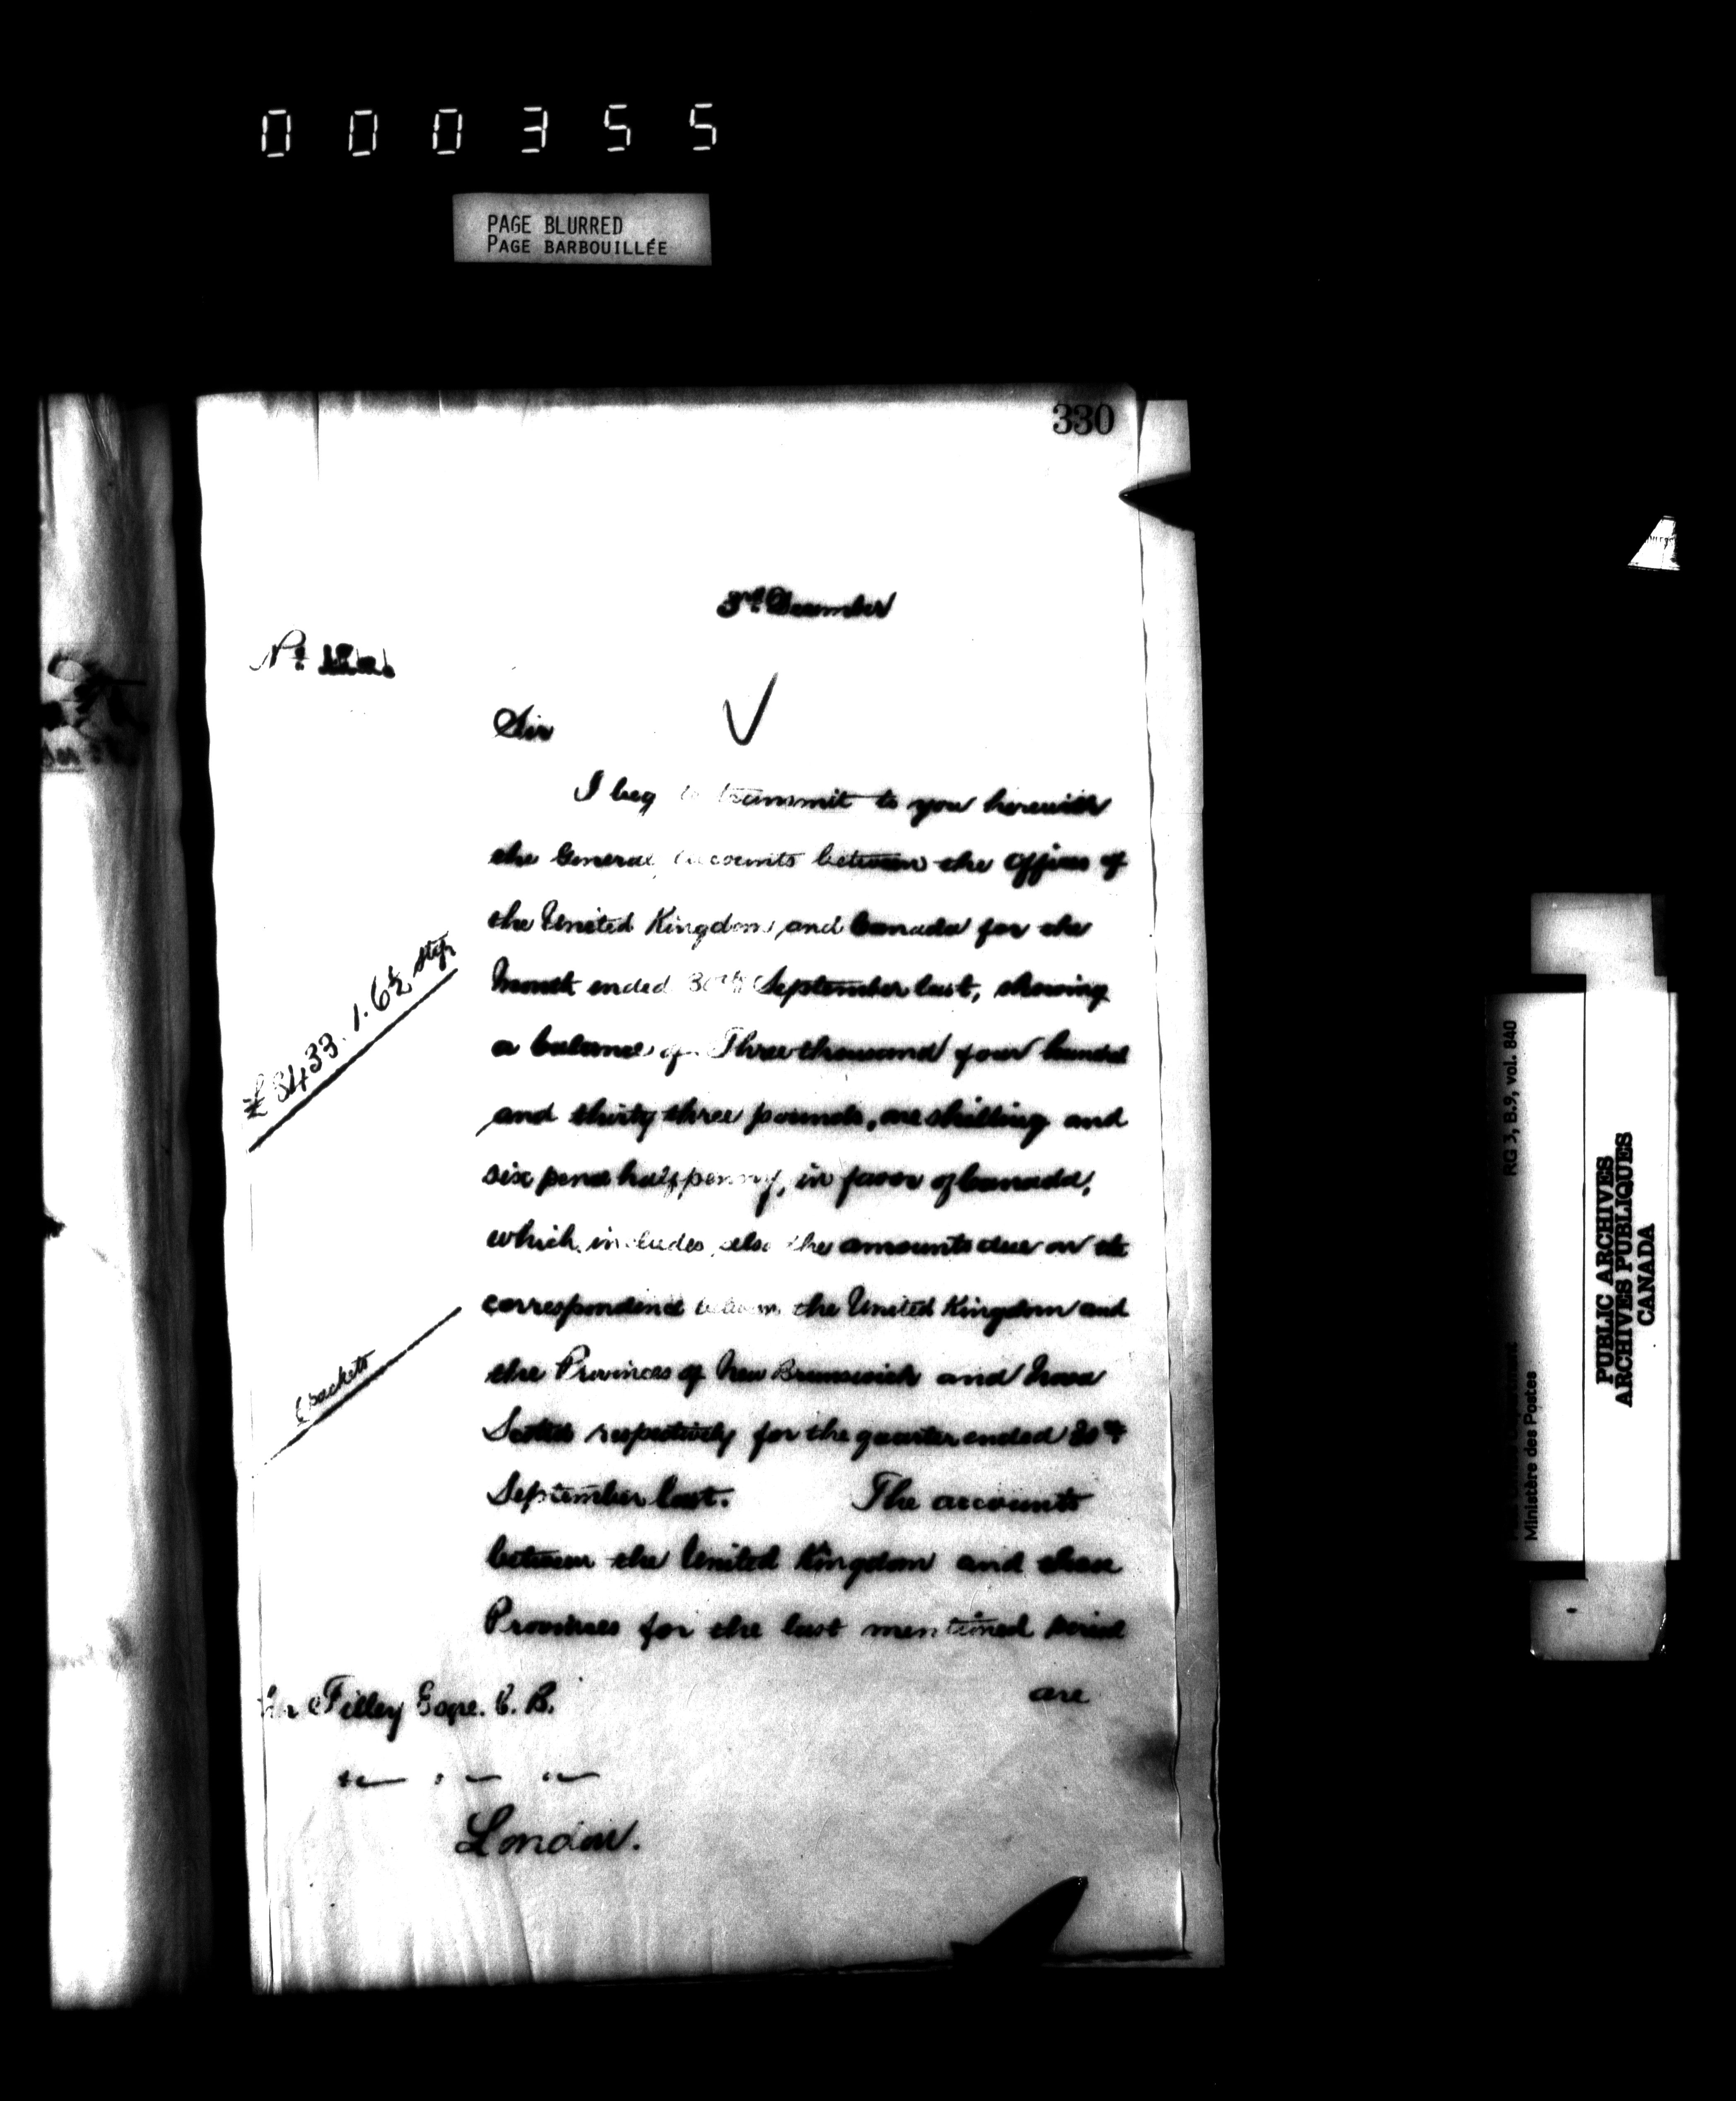 000355
PAGE BLURRED
PAGE BARBOUILLÉE
330
3rd December
No.
Sir
I beg to transmit to you herewith
the General Accounts between the Offices of
the United Kingdom and Canada for the
Month ended 30th September last, showing
a balance of Three thousand four hundred
and thirty three pounds, one shilling and
six pence halfpenny, in favor of Canada,
which includes also the amounts due on the
correspondence between the United Kingdom and
the Provinces of New Brunswick and Nova
Scotia respectively for the quarter ended 30th
September last. The accounts
between the United Kingdom and these
Provinces for the last mentioned period
are
£3433.1.6½ stg
(packets
Tilley Esqre. C. B.
London.
RG 3, B.9, vol. 840
Ministère des Postes
PUBLIC ARCHIVES
ARCHIVES PUBLIQUES
CANADA